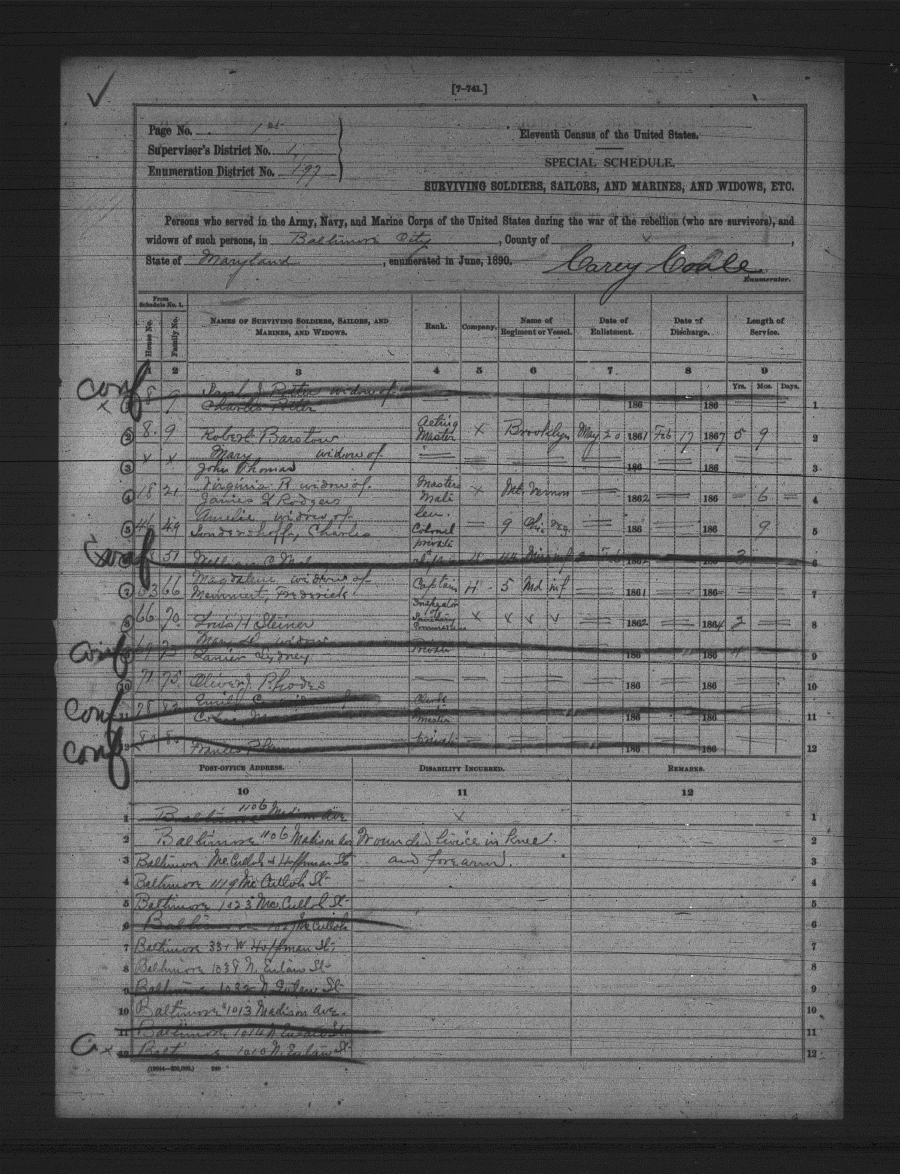 [7-741.]
Page No. 1st
Supervisor's District No. 1
Enumeration District No. 197
Eleventh Census of the United States.
SPECIAL SCHEDULE.
SURVIVING SOLDIERS, SAILORS, AND MARINES, AND WIDOWS, ETC.
Persons who served in the Army, Navy, and Marine Corps of the United States during the war of the rebellion (who are survivors), and
widows of such persons, in Baltimore City, County of x,
State of Maryland, enumerated in June, 1890. Carey Coale
Enumerator.
From Schedule No. 1.
House No. Family No. NAMES OF SURVIVING SOLDIERS, SAILORS, AND MARINES, AND WIDOWS. Rank. Company. Name of Regiment or Vessel. Date of Enlistment. Date of Discharge. Length of Service.
1 2 3 4 5 6 7 8 9
Yrs. Mos. Days.
conf 8 9 widow of
x Charles Potter 186 186 1
2 8 9 Robert Barstow Acting Master x Brooklyn May 20 1861 Feb 17 1867 5 9 2
x x Mary widow of
3 John Thomas 186 186 3
4 18 21 Virginia R widow of
James H Rodgers Masters Mate x Mt. Vernon 1862 186 6 4
5 46 49 Amelia widow of
Charles Leu. Colonel 9 186 186 9 5
51 private 1862 186 3 6
7 63 66 Magdalene widow of
Memmert, Frederick Captain H 5 Md inf 1861 186 7
8 66 70 Lewis H Steiner Inspector of Sanitary Commission x v v v 1862 1864 2 8
conf 69 73 Mary D widow
Lanier Sydney Private 186 186 4 9
10 71 75 Oliver J. Rhodes 186 186 10
conf Emily
11 Master 186 186 11
conf Francis private 186 186 12
POST-OFFICE ADDRESS. DISABILITY INCURRED. REMARKS.
10 11 12
1 Baltimore 1106 Madison Ave x 1
2 Baltimore 1106 Madison Ave Wounded twice in knee 2
3 Baltimore McCulloh & Hoffman St and forearm. 3
4 Baltimore 1119 McCulloh St 4
5 Baltimore 1023 McCulloh St 5
6 Baltimore McCulloh 6
7 Baltimore 331 W Hoffman St; 7
8 Baltimore 1038 N. Eutaw St 8
9 Baltimore 1032 N. Eutaw St 9
10 Baltimore 1013 Madison Ave. 10
11 Baltimore 1014 N Eutaw St 11
12 Balt 1010 N. Eutaw St 12